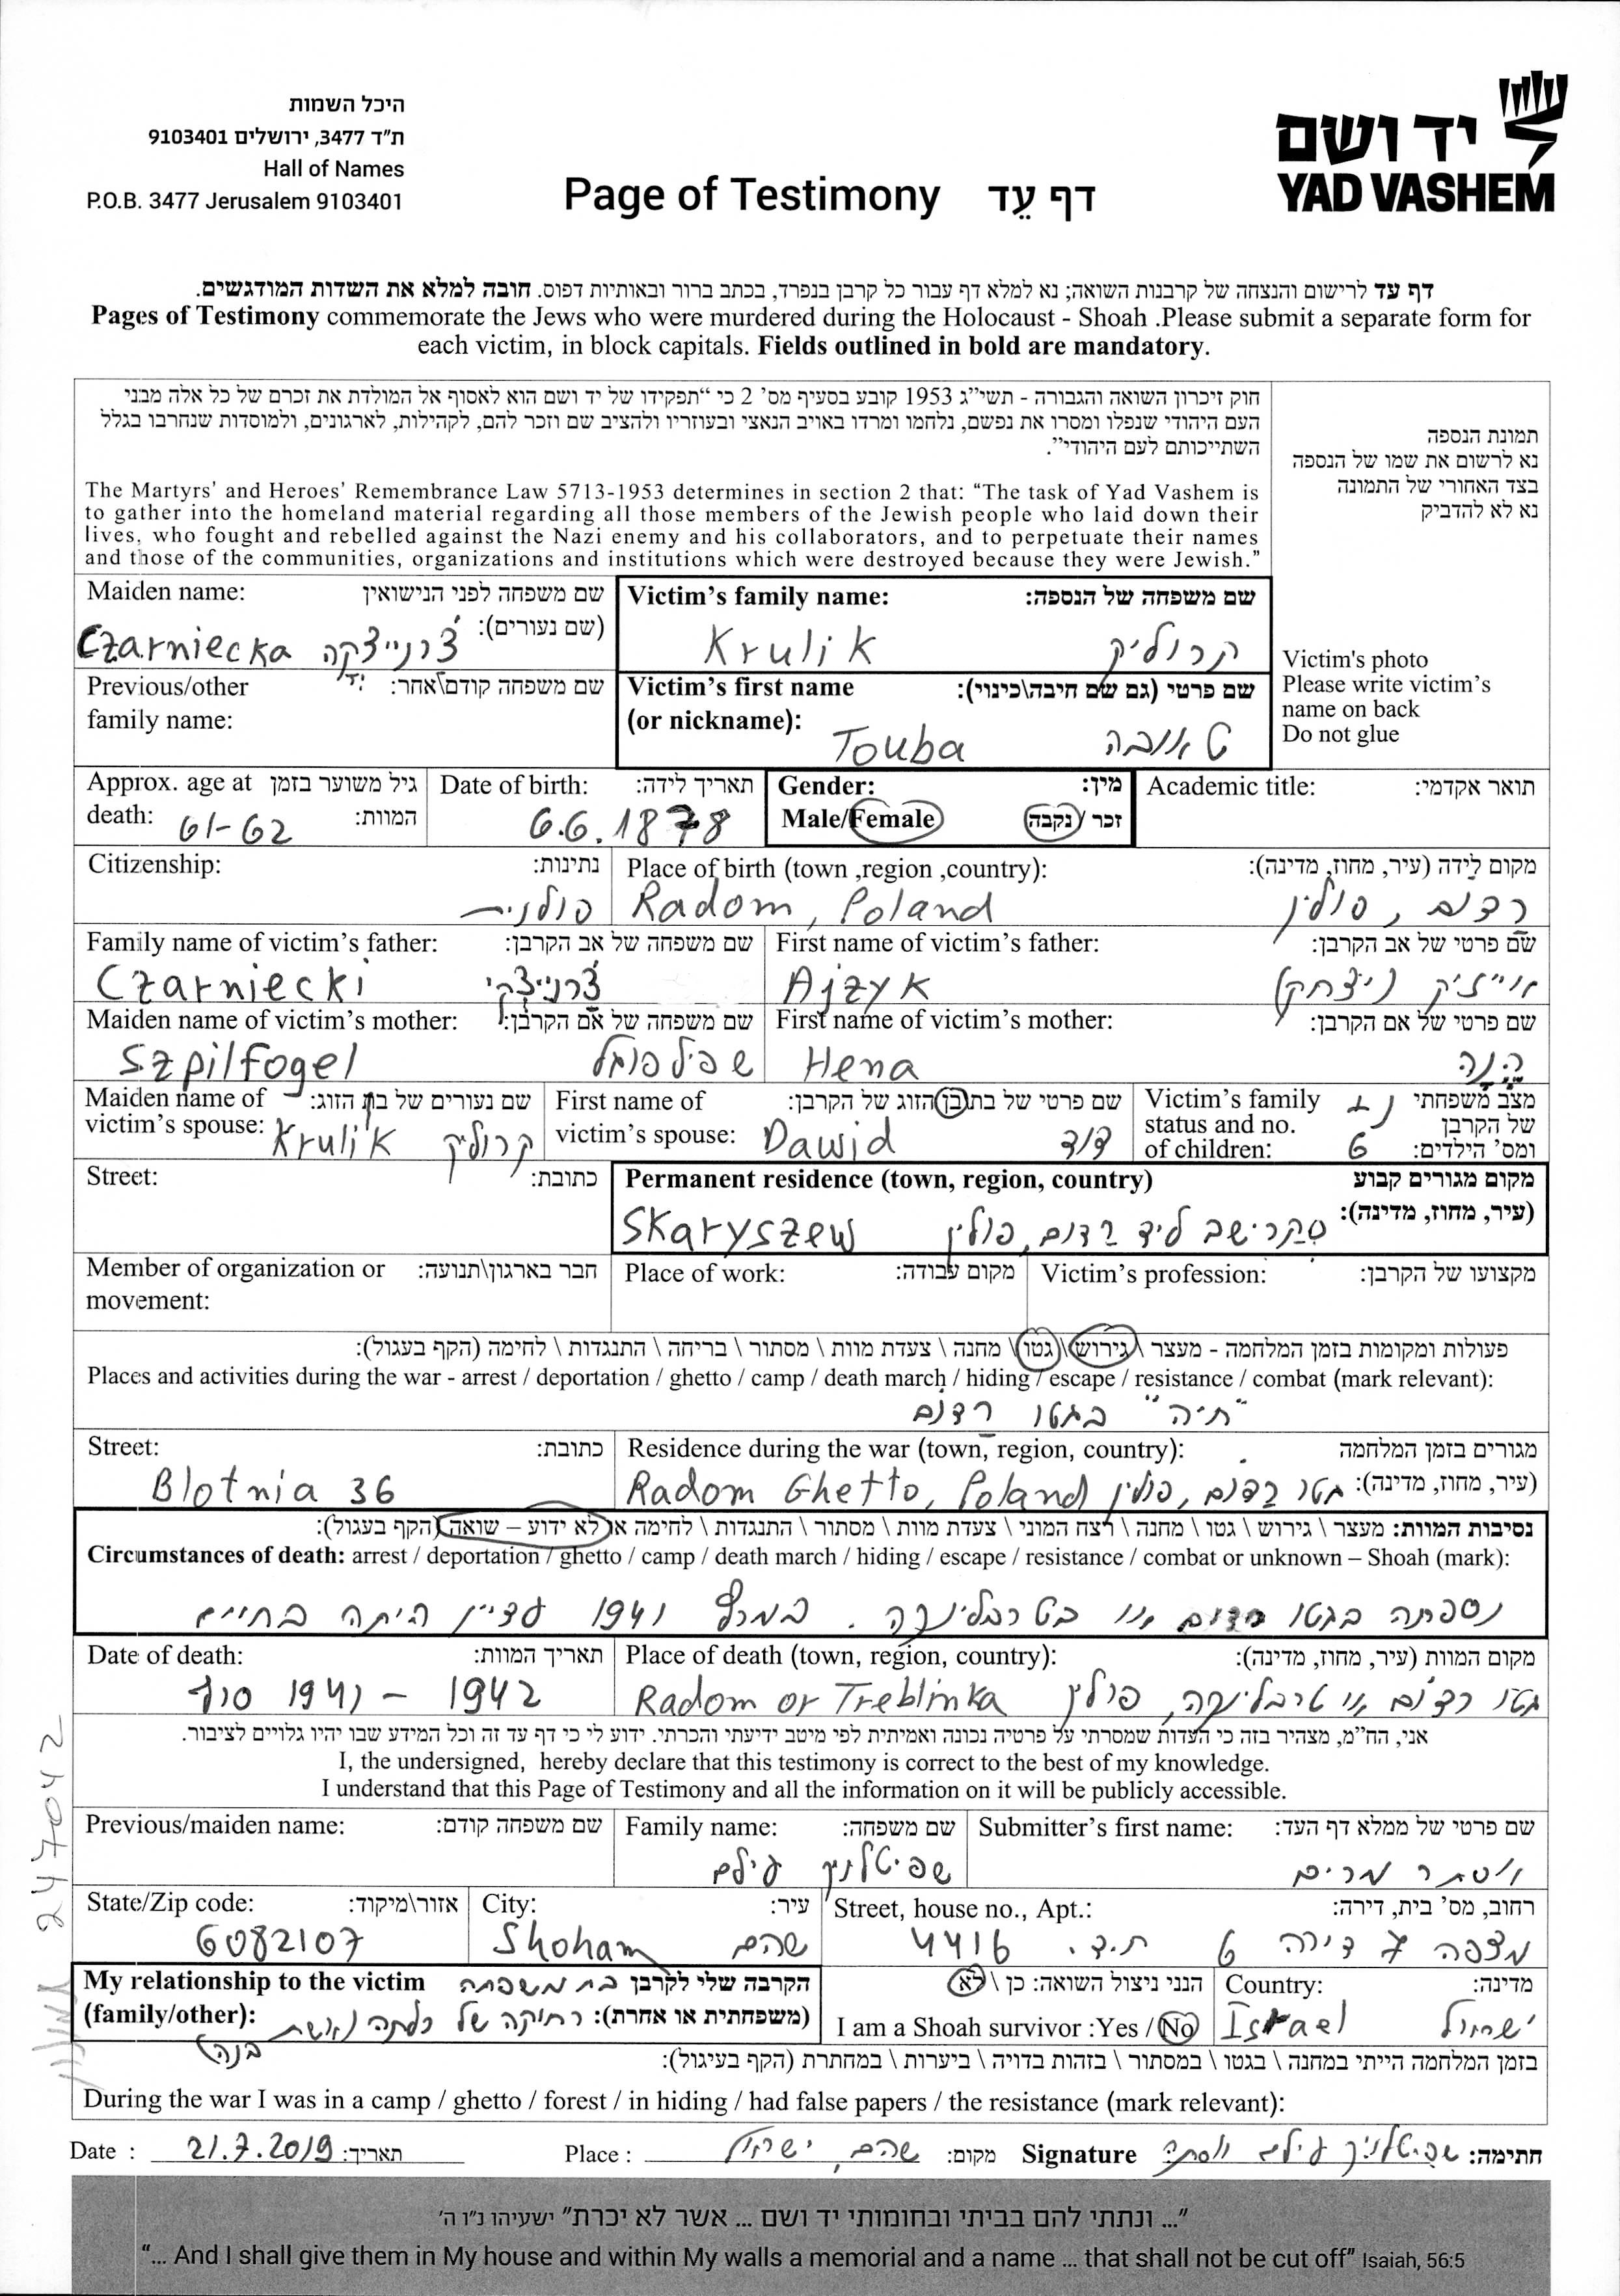 היכל השמות
ת"ד 3477, ירושלים 9103401
Hall of Names
P.O.B. 3477 Jerusalem 9103401
Page of Testimony דף עֵד
יד ושם
YAD VASHEM
דף עד לרישום והנצחה של קרבנות השואה; נא למלא דף עבור כל קרבן בנפרד, בכתב ברור ובאותיות דפוס. חובה למלא את השדות המודגשים.
Pages of Testimony commemorate the Jews who were murdered during the Holocaust - Shoah .Please submit a separate form for
each victim, in block capitals. Fields outlined in bold are mandatory.
חוק זיכרון השואה והגבורה - תשי"ג 1953 קובע בסעיף מס' 2 כי "תפקידו של יד ושם הוא לאסוף אל המולדת את זכרם של כל אלה מבני
העם היהודי שנפלו ומסרו את נפשם, נלחמו ומרדו באויב הנאצי ובעוזריו ולהציב שם וזכר להם, לקהילות, לארגונים, ולמוסדות שנחרבו בגלל
השתייכותם לעם היהודי".
The Martyrs' and Heroes' Remembrance Law 5713-1953 determines in section 2 that: "The task of Yad Vashem is
to gather into the homeland material regarding all those members of the Jewish people who laid down their
lives, who fought and rebelled against the Nazi enemy and his collaborators, and to perpetuate their names
and those of the communities, organizations and institutions which were destroyed because they were Jewish."
תמונת הנספה
נא לרשום את שמו של הנספה
בצד האחורי של התמונה
נא לא להדביק
Victim's photo
Please write victim's
name on back
Do not glue
Maiden name: שם משפחה לפני הנישואין
(שם נעורים):
Czarniecka צ'רנייצקה
Victim's family name: שם משפחה של הנספה:
Krulik קרוליק
Previous/other שם משפחה קודם\אחר:
family name:
Victim's first name שם פרטי (גם שם חיבה\כינוי):
(or nickname):
Touba טאובה
Approx. age at גיל משוער בזמן
death: 61-62 המוות:
Date of birth: תאריך לידה:
6.6.1878
Gender: מין:
Male/Female זכר / נקבה
Academic title: תואר אקדמי:
Citizenship: נתינות:
פולנית
Place of birth (town ,region ,country): מקום לידה (עיר, מחוז, מדינה):
Radom, Poland רדום, פולין
Family name of victim's father: שם משפחה של אב הקרבן:
Czarniecki צ'רנייצקי
First name of victim's father: שם פרטי של אב הקרבן:
Ajzyk אייזיק (יצחק)
Maiden name of victim's mother: שם משפחה של אם הקרבן:
Szpilfogel שפילפוגל
First name of victim's mother: שם פרטי של אם הקרבן:
Hena הנה
Maiden name of שם נעורים של בת הזוג:
victim's spouse: Krulik קרוליק
First name of שם פרטי של בת\בן הזוג של הקרבן:
victim's spouse: Dawid דוד
Victim's family מצב משפחתי
status and no. של הקרבן
of children: 6 ומס' הילדים:
Street: כתובת:
Permanent residence (town, region, country) מקום מגורים קבוע
(עיר, מחוז, מדינה):
Skaryszew סקרישב ליד רדום, פולין
Member of organization or חבר בארגון\תנועה:
movement:
Place of work: מקום עבודה:
Victim's profession: מקצועו של הקרבן:
פעולות ומקומות בזמן המלחמה - מעצר \ גירוש \ גטו \ מחנה \ צעדת מוות \ מסתור \ בריחה \ התנגדות \ לחימה (הקף בעגול):
Places and activities during the war - arrest / deportation / ghetto / camp / death march / hiding / escape / resistance / combat (mark relevant):
"חיה" בגטו רדום
Street: כתובת:
Blotnia 36
Residence during the war (town, region, country): מגורים בזמן המלחמה
(עיר, מחוז, מדינה):
Radom Ghetto, Poland גטו רדום, פולין
נסיבות המוות: מעצר \ גירוש \ גטו \ מחנה \ רצח המוני \ צעדת מוות \ מסתור \ התנגדות \ לחימה או לא ידוע – שואה (הקף בעגול):
Circumstances of death: arrest / deportation / ghetto / camp / death march / hiding / escape / resistance / combat or unknown – Shoah (mark):
נספתה בגטו רדום או בטרבלינקה. במרץ 1941 עדיין היתה בחיים
Date of death: תאריך המוות:
סוף 1941 - 1942
Place of death (town, region, country): מקום המוות (עיר, מחוז, מדינה):
Radom or Treblinka גטו רדום או טרבלינקה, פולין
אני, הח"מ, מצהיר בזה כי העדות שמסרתי על פרטיה נכונה ואמיתית לפי מיטב ידיעתי והכרתי. ידוע לי כי דף עד זה וכל המידע שבו יהיו גלויים לציבור.
I, the undersigned, hereby declare that this testimony is correct to the best of my knowledge.
I understand that this Page of Testimony and all the information on it will be publicly accessible.
Previous/maiden name: שם משפחה קודם:
Family name: שם משפחה:
שפיטלניק עילם
Submitter's first name: שם פרטי של ממלא דף העד:
אסתר מרים
State/Zip code: אזור\מיקוד:
6082107
City: עיר:
Shoham שהם
Street, house no., Apt.: רחוב, מס' בית, דירה:
מצפה 7 דירה 6 ת.ד. 4416
My relationship to the victim הקרבה שלי לקרבן בת משפחה
(family/other): (משפחתית או אחרת): רחוקה של כלתה (אשת
בנה)
הנני ניצול השואה: כן \ לא
I am a Shoah survivor :Yes / No
Country: מדינה:
Israel ישראל
בזמן המלחמה הייתי במחנה \ בגטו \ במסתור \ בזהות בדויה \ ביערות \ במחתרת (הקף בעיגול):
During the war I was in a camp / ghetto / forest / in hiding / had false papers / the resistance (mark relevant):
Date : 21.7.2019 תאריך:
Place : שהם, ישראל מקום:
Signature שפיטלניק עילם אסתר חתימה:
247042
"... ונתתי להם בביתי ובחומותי יד ושם ... אשר לא יכרת" ישעיהו נ"ו ה'
"... And I shall give them in My house and within My walls a memorial and a name ... that shall not be cut off" Isaiah, 56:5